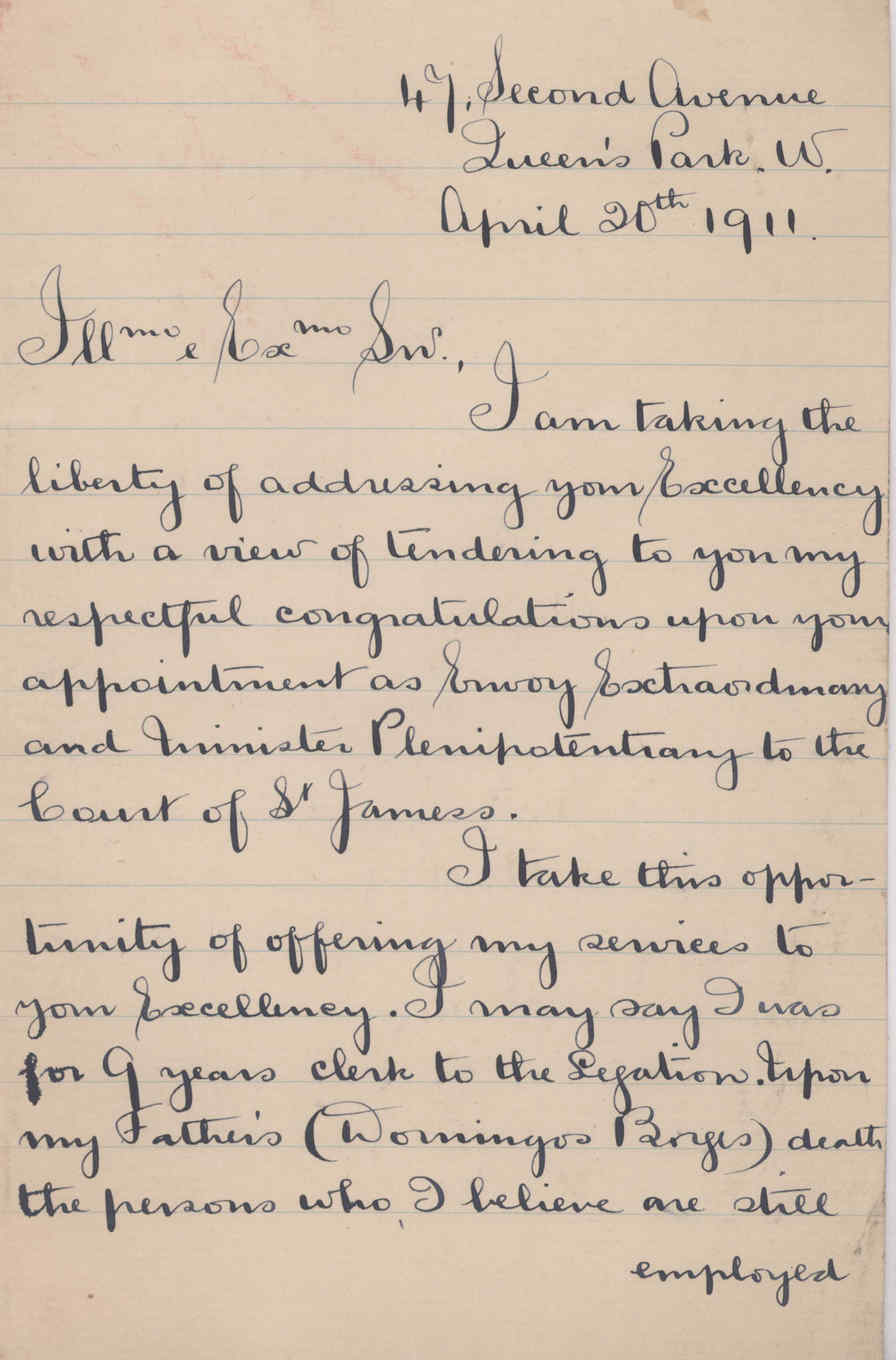 47, Second Avenue
Queen's Park. W.
April 20th 1911.
Illmo e Exmo Snr.,
I am taking the
liberty of addressing your Excellency
with a view of tendering to you my
respectful congratulations upon your
appointment as Envoy Extraordinary
and Minister Plenipotentiary to the
Court of St James's.
I take this oppor-
tunity of offering my services to
your Excellency. I may say I was
for 9 years clerk to the Legation. Upon
my Father's (Domingos Borges) death
the persons who, I believe are still
employed